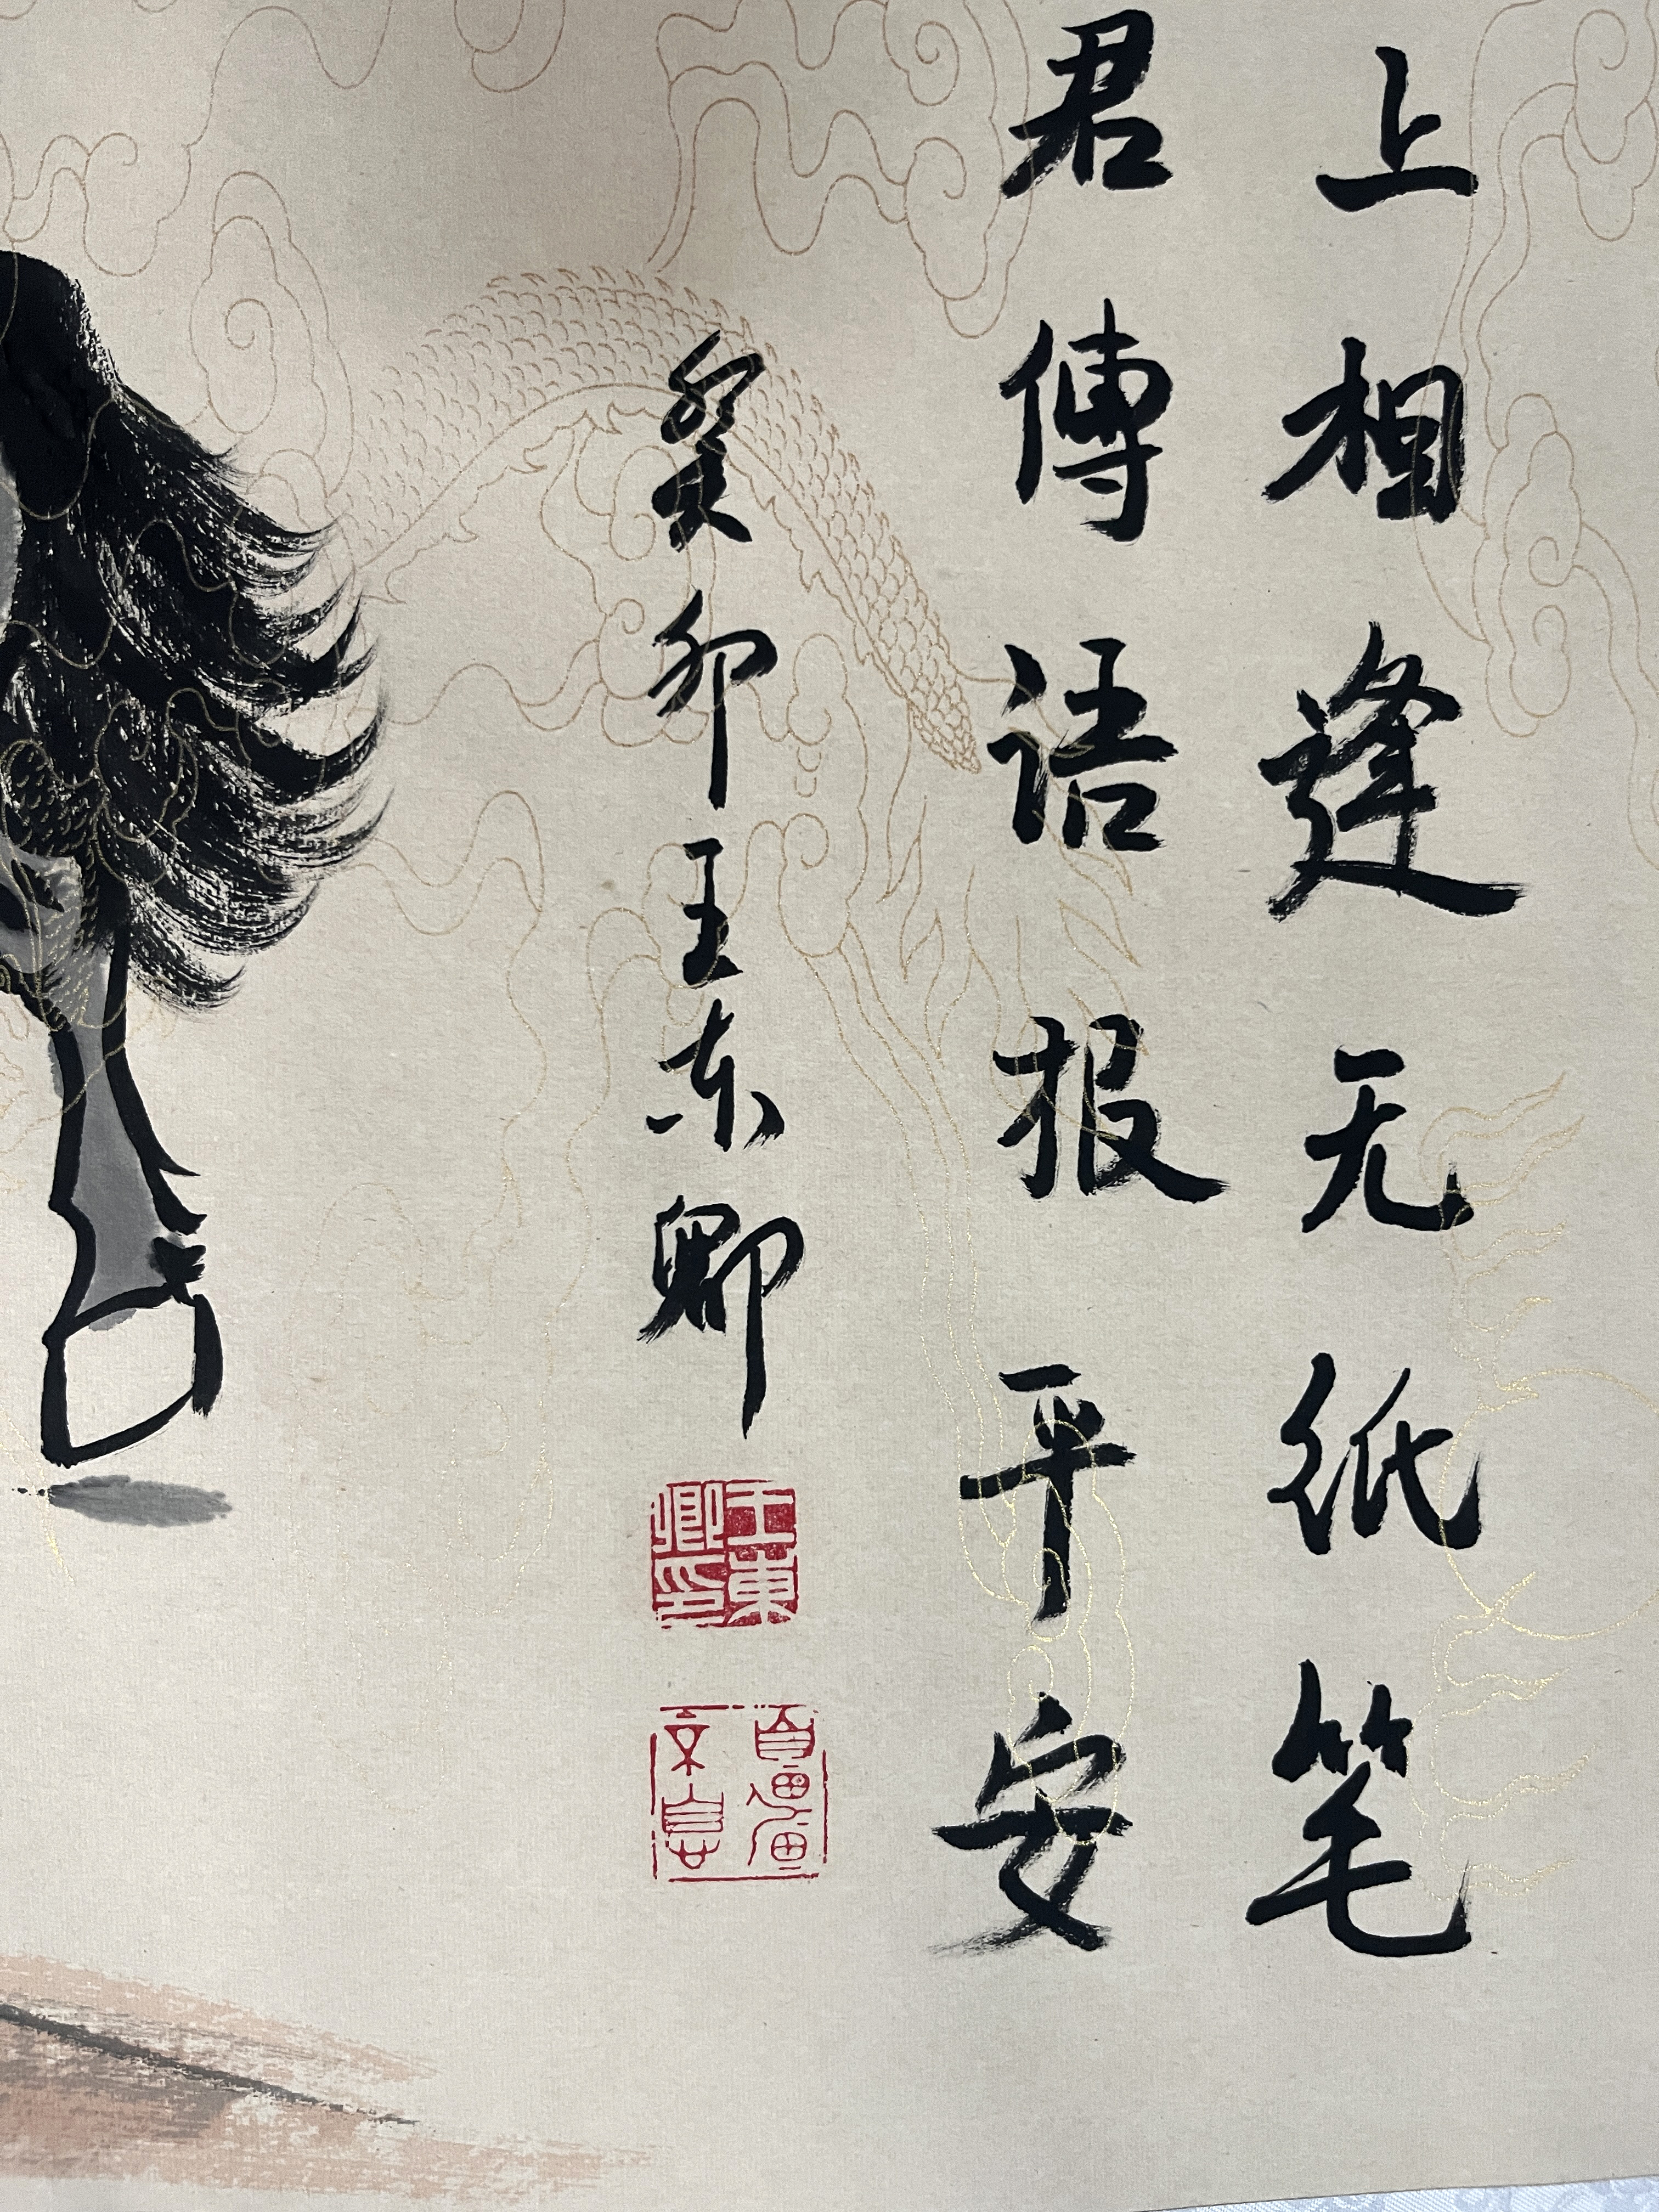 上相逢无纸笔
君傳语报平安
癸卯王东卿
王東卿印